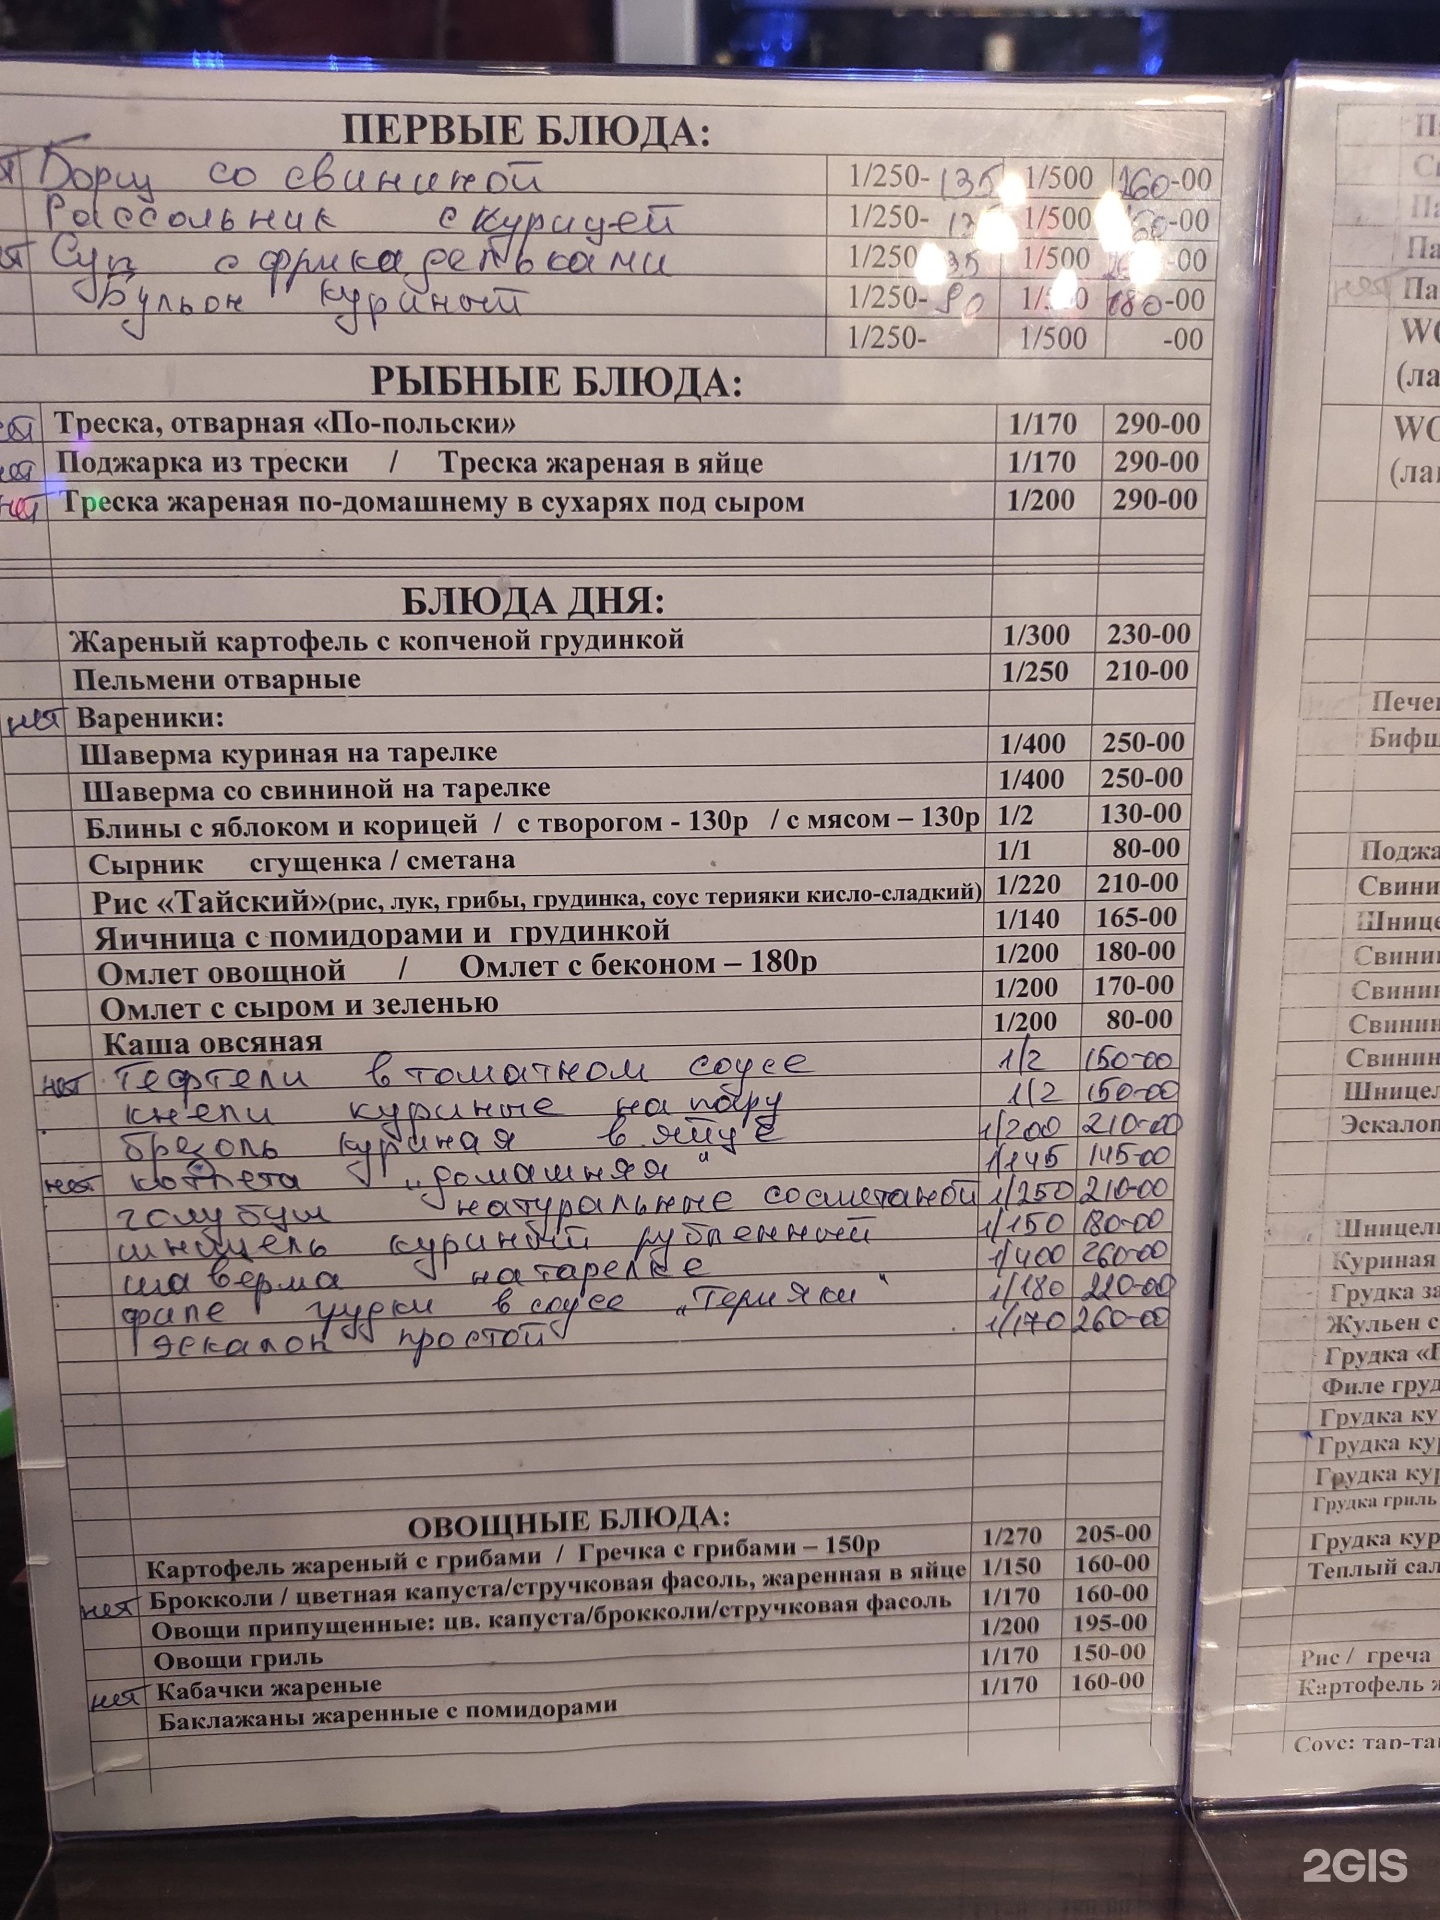 ПЕРВЫЕ БЛЮДА:
Борщ со свининой 1/250- 135 1/500 160-00
Рассольник с курицей 1/250- 1/500 -00
Суп с фрикадельками 1/250 35 1/500 -00
Бульон куриный 1/250- 90 180-00
1/250- 1/500 -00
РЫБНЫЕ БЛЮДА:
нет Треска, отварная «По-польски» 1/170 290-00
нет Поджарка из трески / Треска жареная в яйце 1/170 290-00
нет Треска жареная по-домашнему в сухарях под сыром 1/200 290-00
БЛЮДА ДНЯ:
Жареный картофель с копченой грудинкой 1/300 230-00
Пельмени отварные 1/250 210-00
нет Вареники:
Шаверма куриная на тарелке 1/400 250-00
Шаверма со свининой на тарелке 1/400 250-00
Блины с яблоком и корицей / с творогом - 130р / с мясом – 130р 1/2 130-00
Сырник сгущенка / сметана 1/1 80-00
Рис «Тайский»(рис, лук, грибы, грудинка, соус терияки кисло-сладкий) 1/220 210-00
Яичница с помидорами и грудинкой 1/140 165-00
Омлет овощной / Омлет с беконом – 180р 1/200 180-00
Омлет с сыром и зеленью 1/200 170-00
Каша овсяная 1/200 80-00
нет Тефтели в томатном соусе 1/2 150-00
кнели куриные на пару 1/2 150-00
брезоль куриная в яйце 1/200 210-00
нет котлета „домашняя“ 1/145 145-00
голубцы натуральные со сметаной 1/250 210-00
шницель куриный рубленный 1/150 180-00
шаверма на тарелке 1/400 260-00
филе грудки в соусе „Терияки“ 1/180 220-00
эскалоп простой 1/170 260-00
ОВОЩНЫЕ БЛЮДА:
Картофель жареный с грибами / Гречка с грибами – 150р 1/270 205-00
нет Брокколи / цветная капуста/стручковая фасоль, жаренная в яйце 1/150 160-00
Овощи припущенные: цв. капуста/брокколи/стручковая фасоль 1/170 160-00
Овощи гриль 1/200 195-00
нет Кабачки жареные 1/170 150-00
Баклажаны жаренные с помидорами 1/170 160-00
нет Па
WO
(ла
WO
(ла
Пече
Бифш
Поджа
Свини
Шнице
Свинин
Свинин
Свинин
Свинин
Шницел
Эскалоп
Шницель
Куриная
Грудка за
Жульен с
Грудка «П
Филе груд
Грудка ку
Грудка кур
Грудка кур
Грудка гриль
Грудка кур
Теплый сал
Рис / греча
Картофель ж
Соус: тар-тар
2GIS